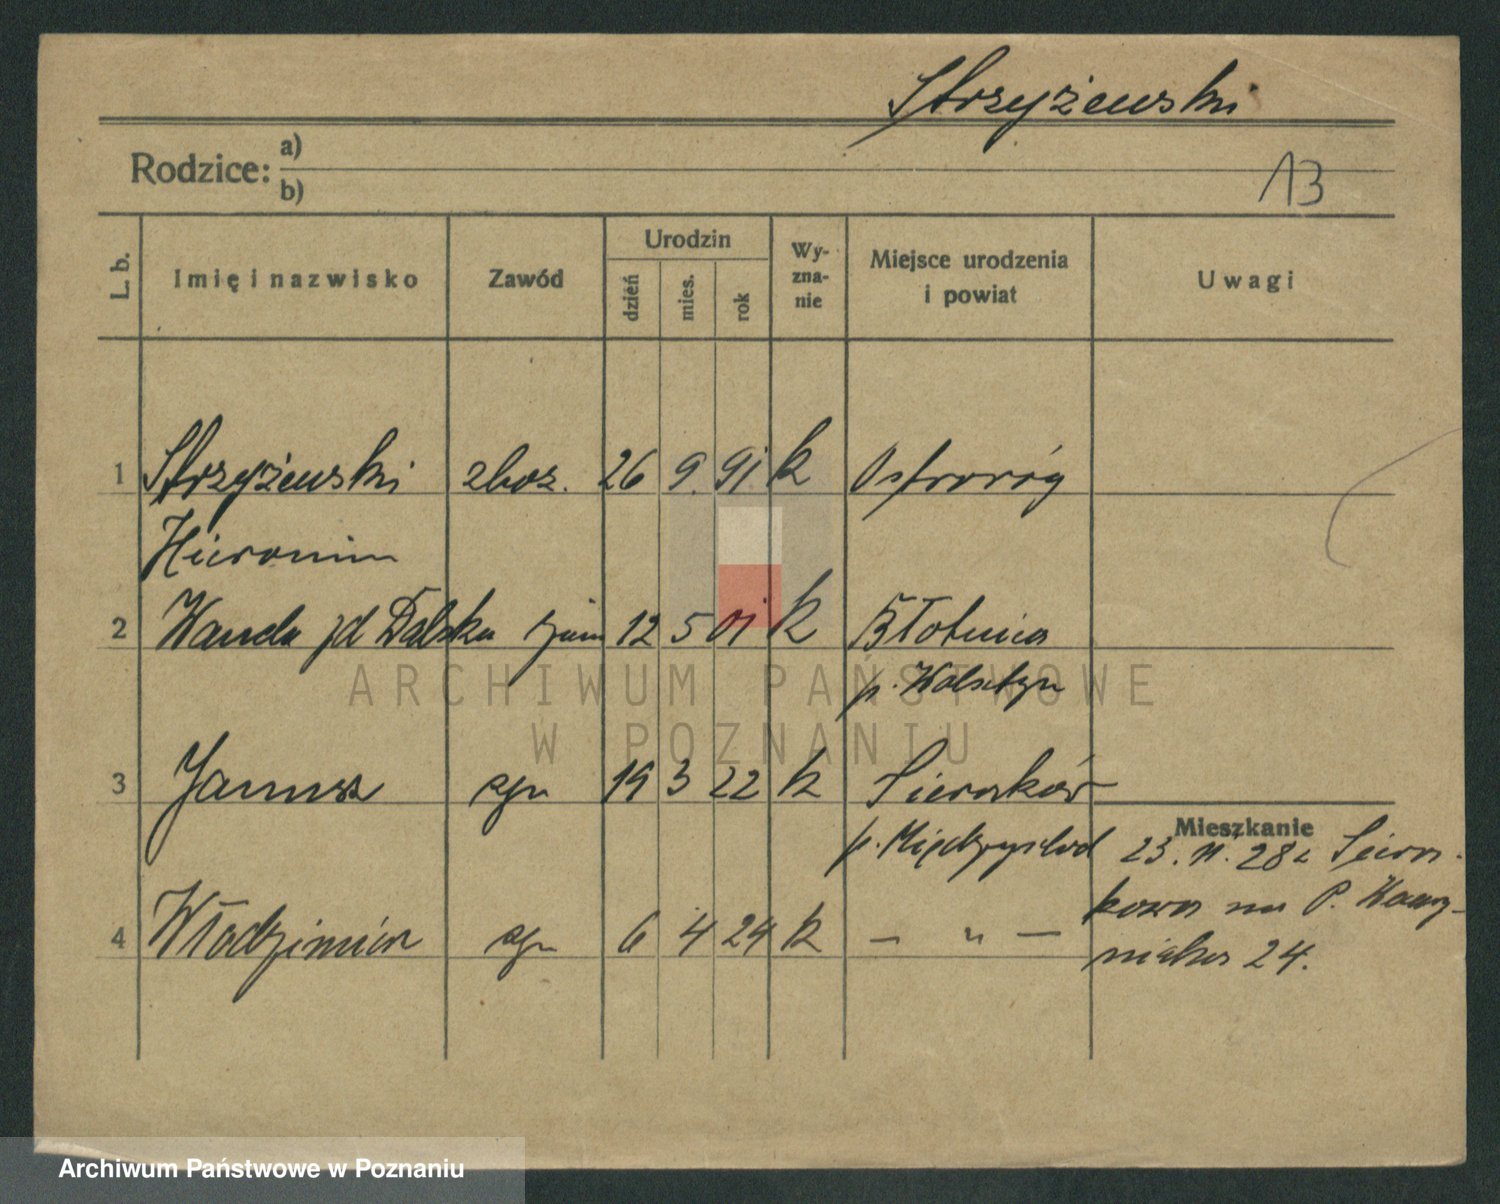 Strzyżewski
Rodzice: a)
b)
13
L. b. Imię i nazwisko Zawód Urodzin dzień mies. rok Wyznanie Miejsce urodzenia i powiat Uwagi
1 Strzyżewski 26 9. 91. k Ostroróg
Hieronim
2 Wanda zd Dalska żona 12 5 01 k Błotnica
p. Wolsztyn
3 Janusz syn 19 3 22 k Sieraków
p. Międzychód
Mieszkanie
23. 28 z Siera-
4 Włodzimierz syn 6 4 24 k — " —
kowa na P. Wawrzy-
niaka 24.
ARCHIWUM PAŃSTWOWE
W POZNANIU
Archiwum Państwowe w Poznaniu